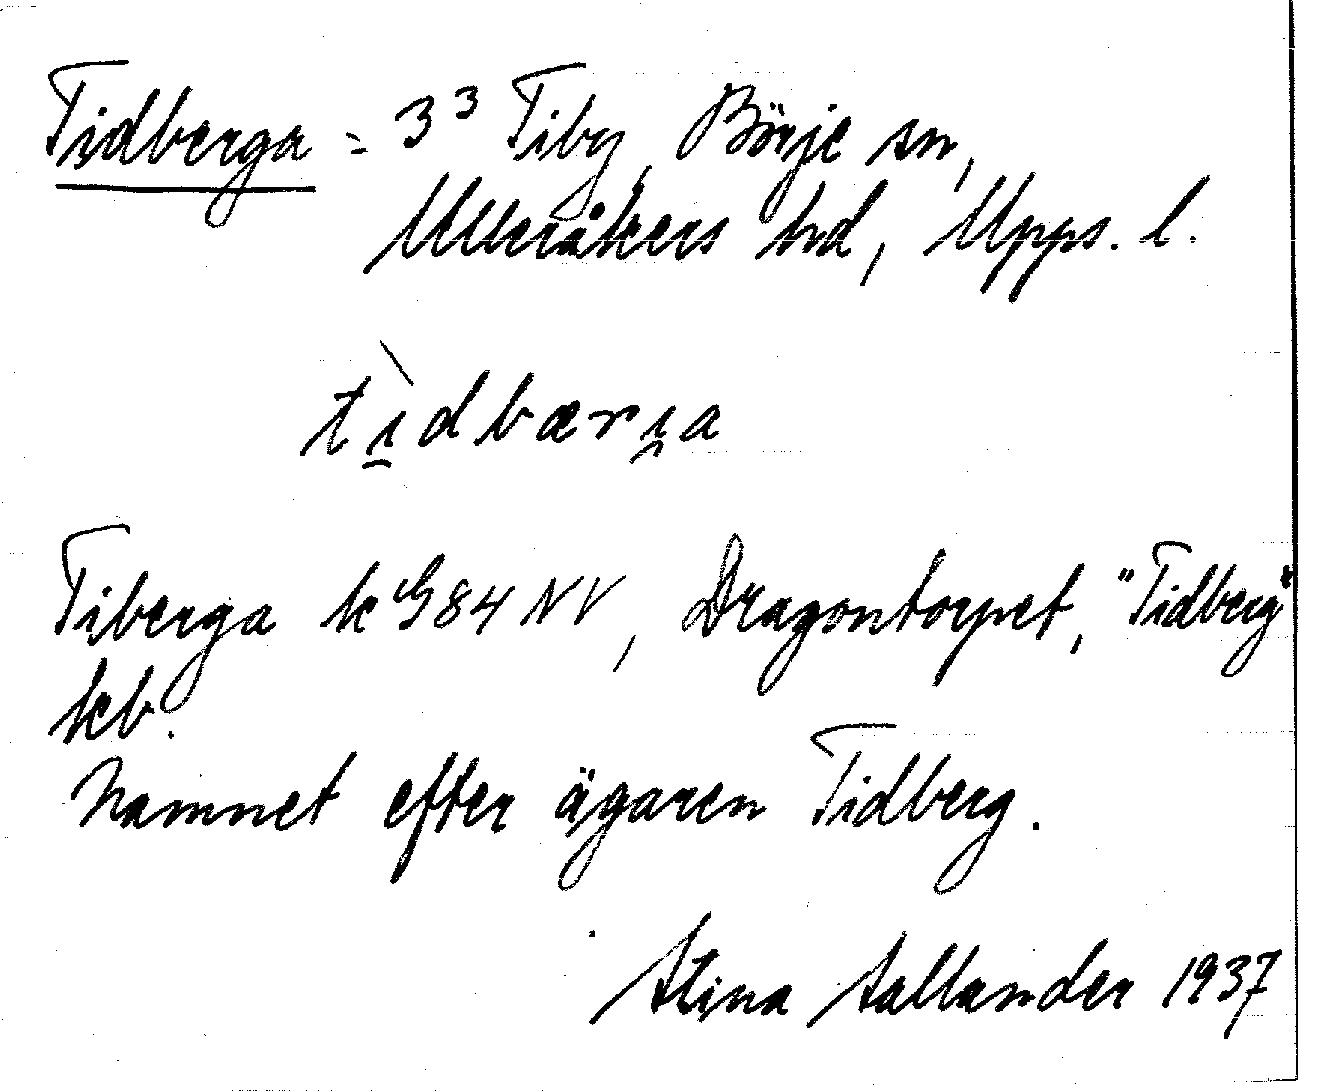 Tidberga = 3³ Tiby, Börje sn,
Ulleråkers hd, Upps. l.
tı̱̀dbærı̯a
Tiberga k G84 NV, Dragontorpet, "Tidberg"
kb.
Namnet efter ägaren Tidberg.
Stina Sallander 1937